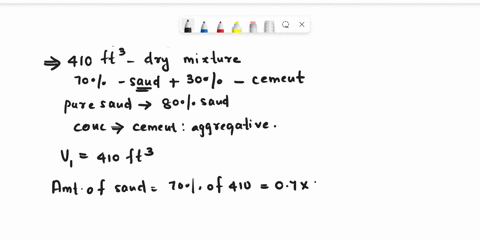 ⇒ 410 ft³ - dry mixture
70% - saud + 30% - cement
pure saud → 80% saud
conc → cement : aggregative.
V₁ = 410 ft³
Amt. of saud = 70% of 410 = 0.7x.